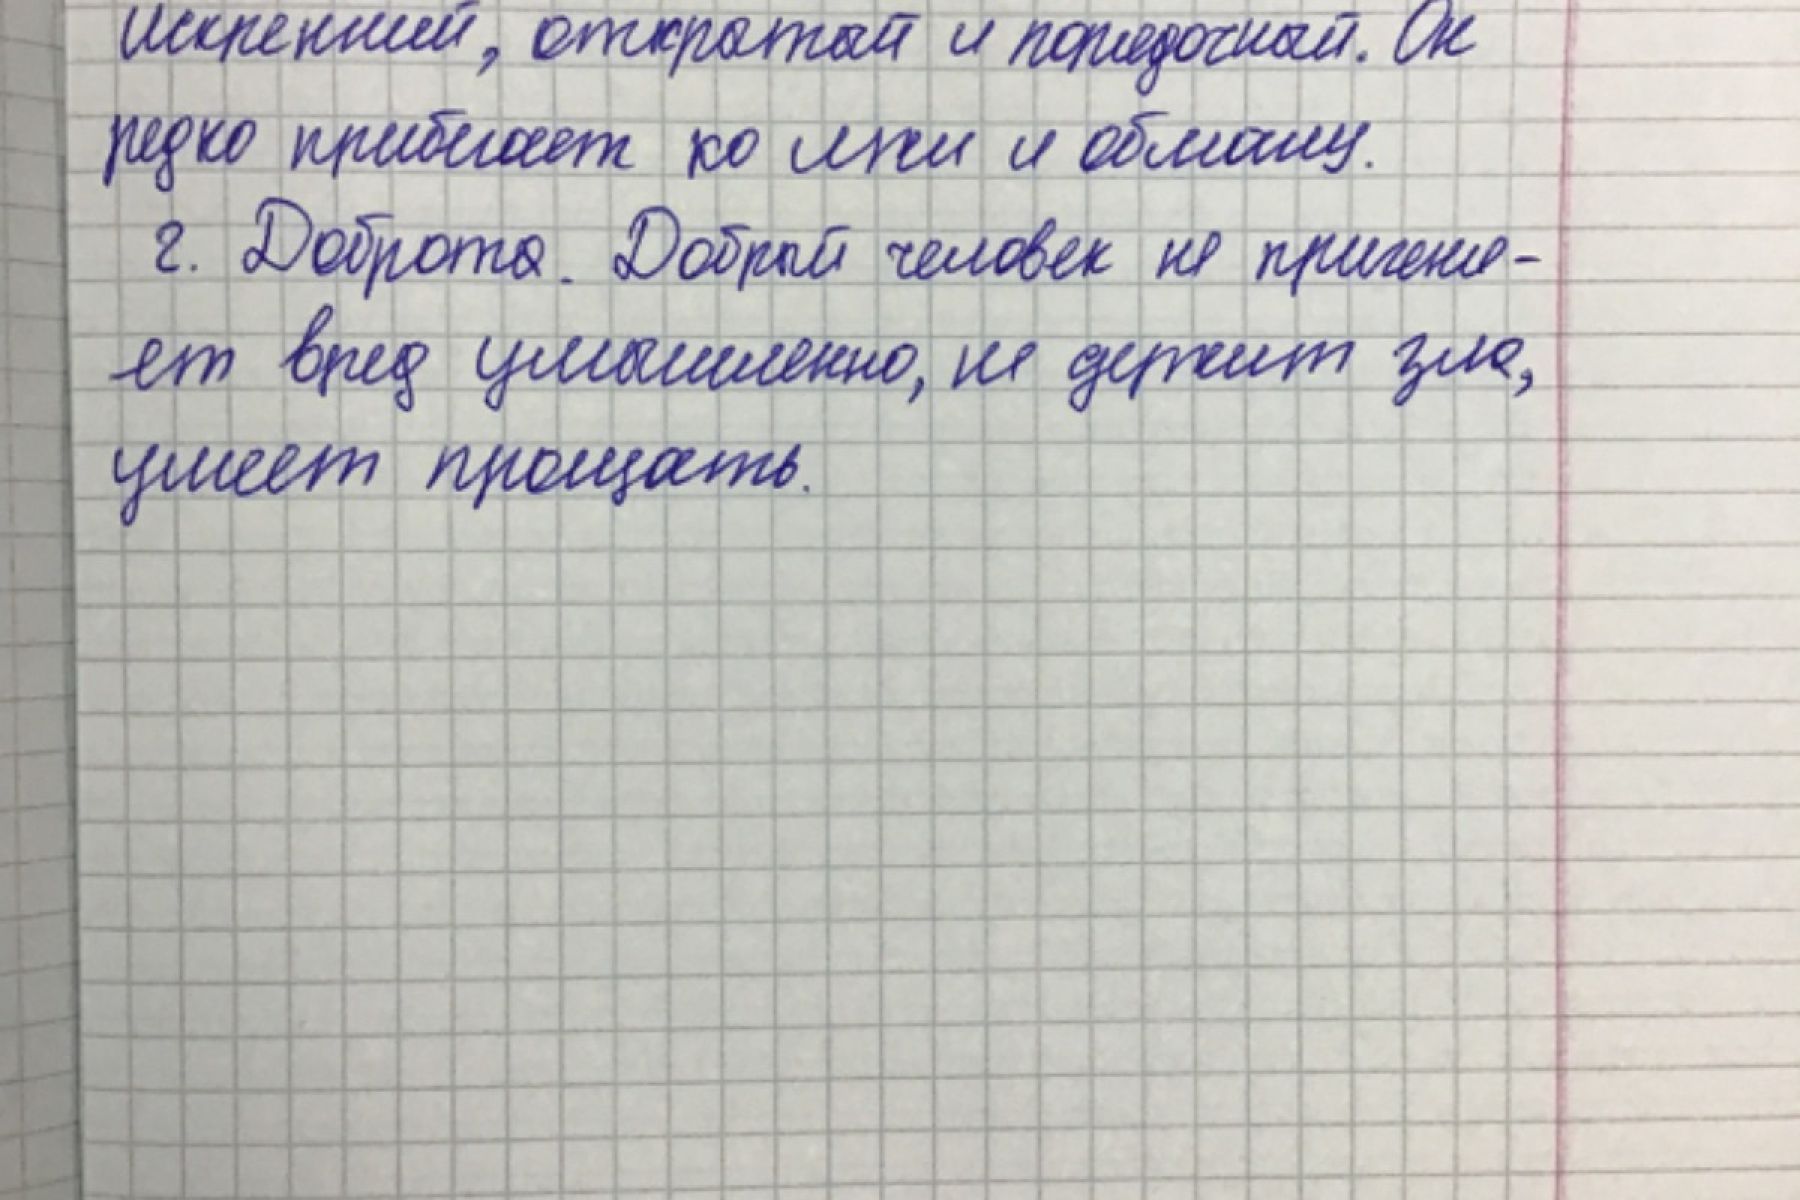 Искренний, открытый и порядочный. Он
редко прибегает ко лжи и обману.
г. Доброта. Добрый человек не причиня-
ет вред умышленно, не держит зла,
умеет прощать.